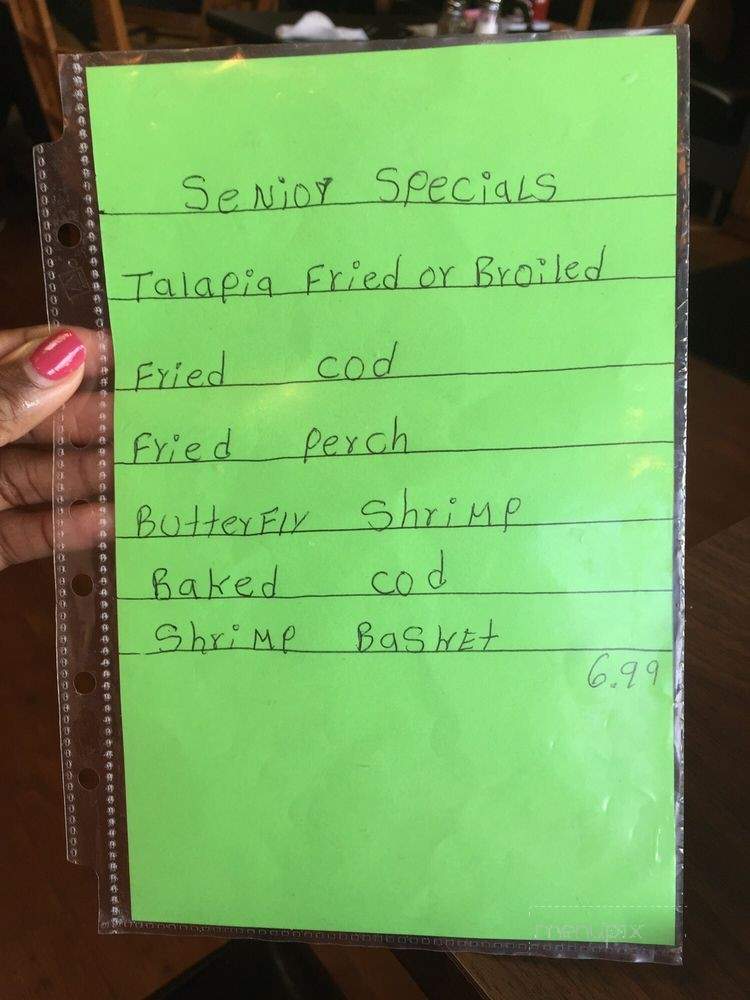 Senior Specials
Talapia Fried or Broiled
Fried cod
Fried perch
Butterfly Shrimp
Baked cod
Shrimp Basket
6.99
menupix